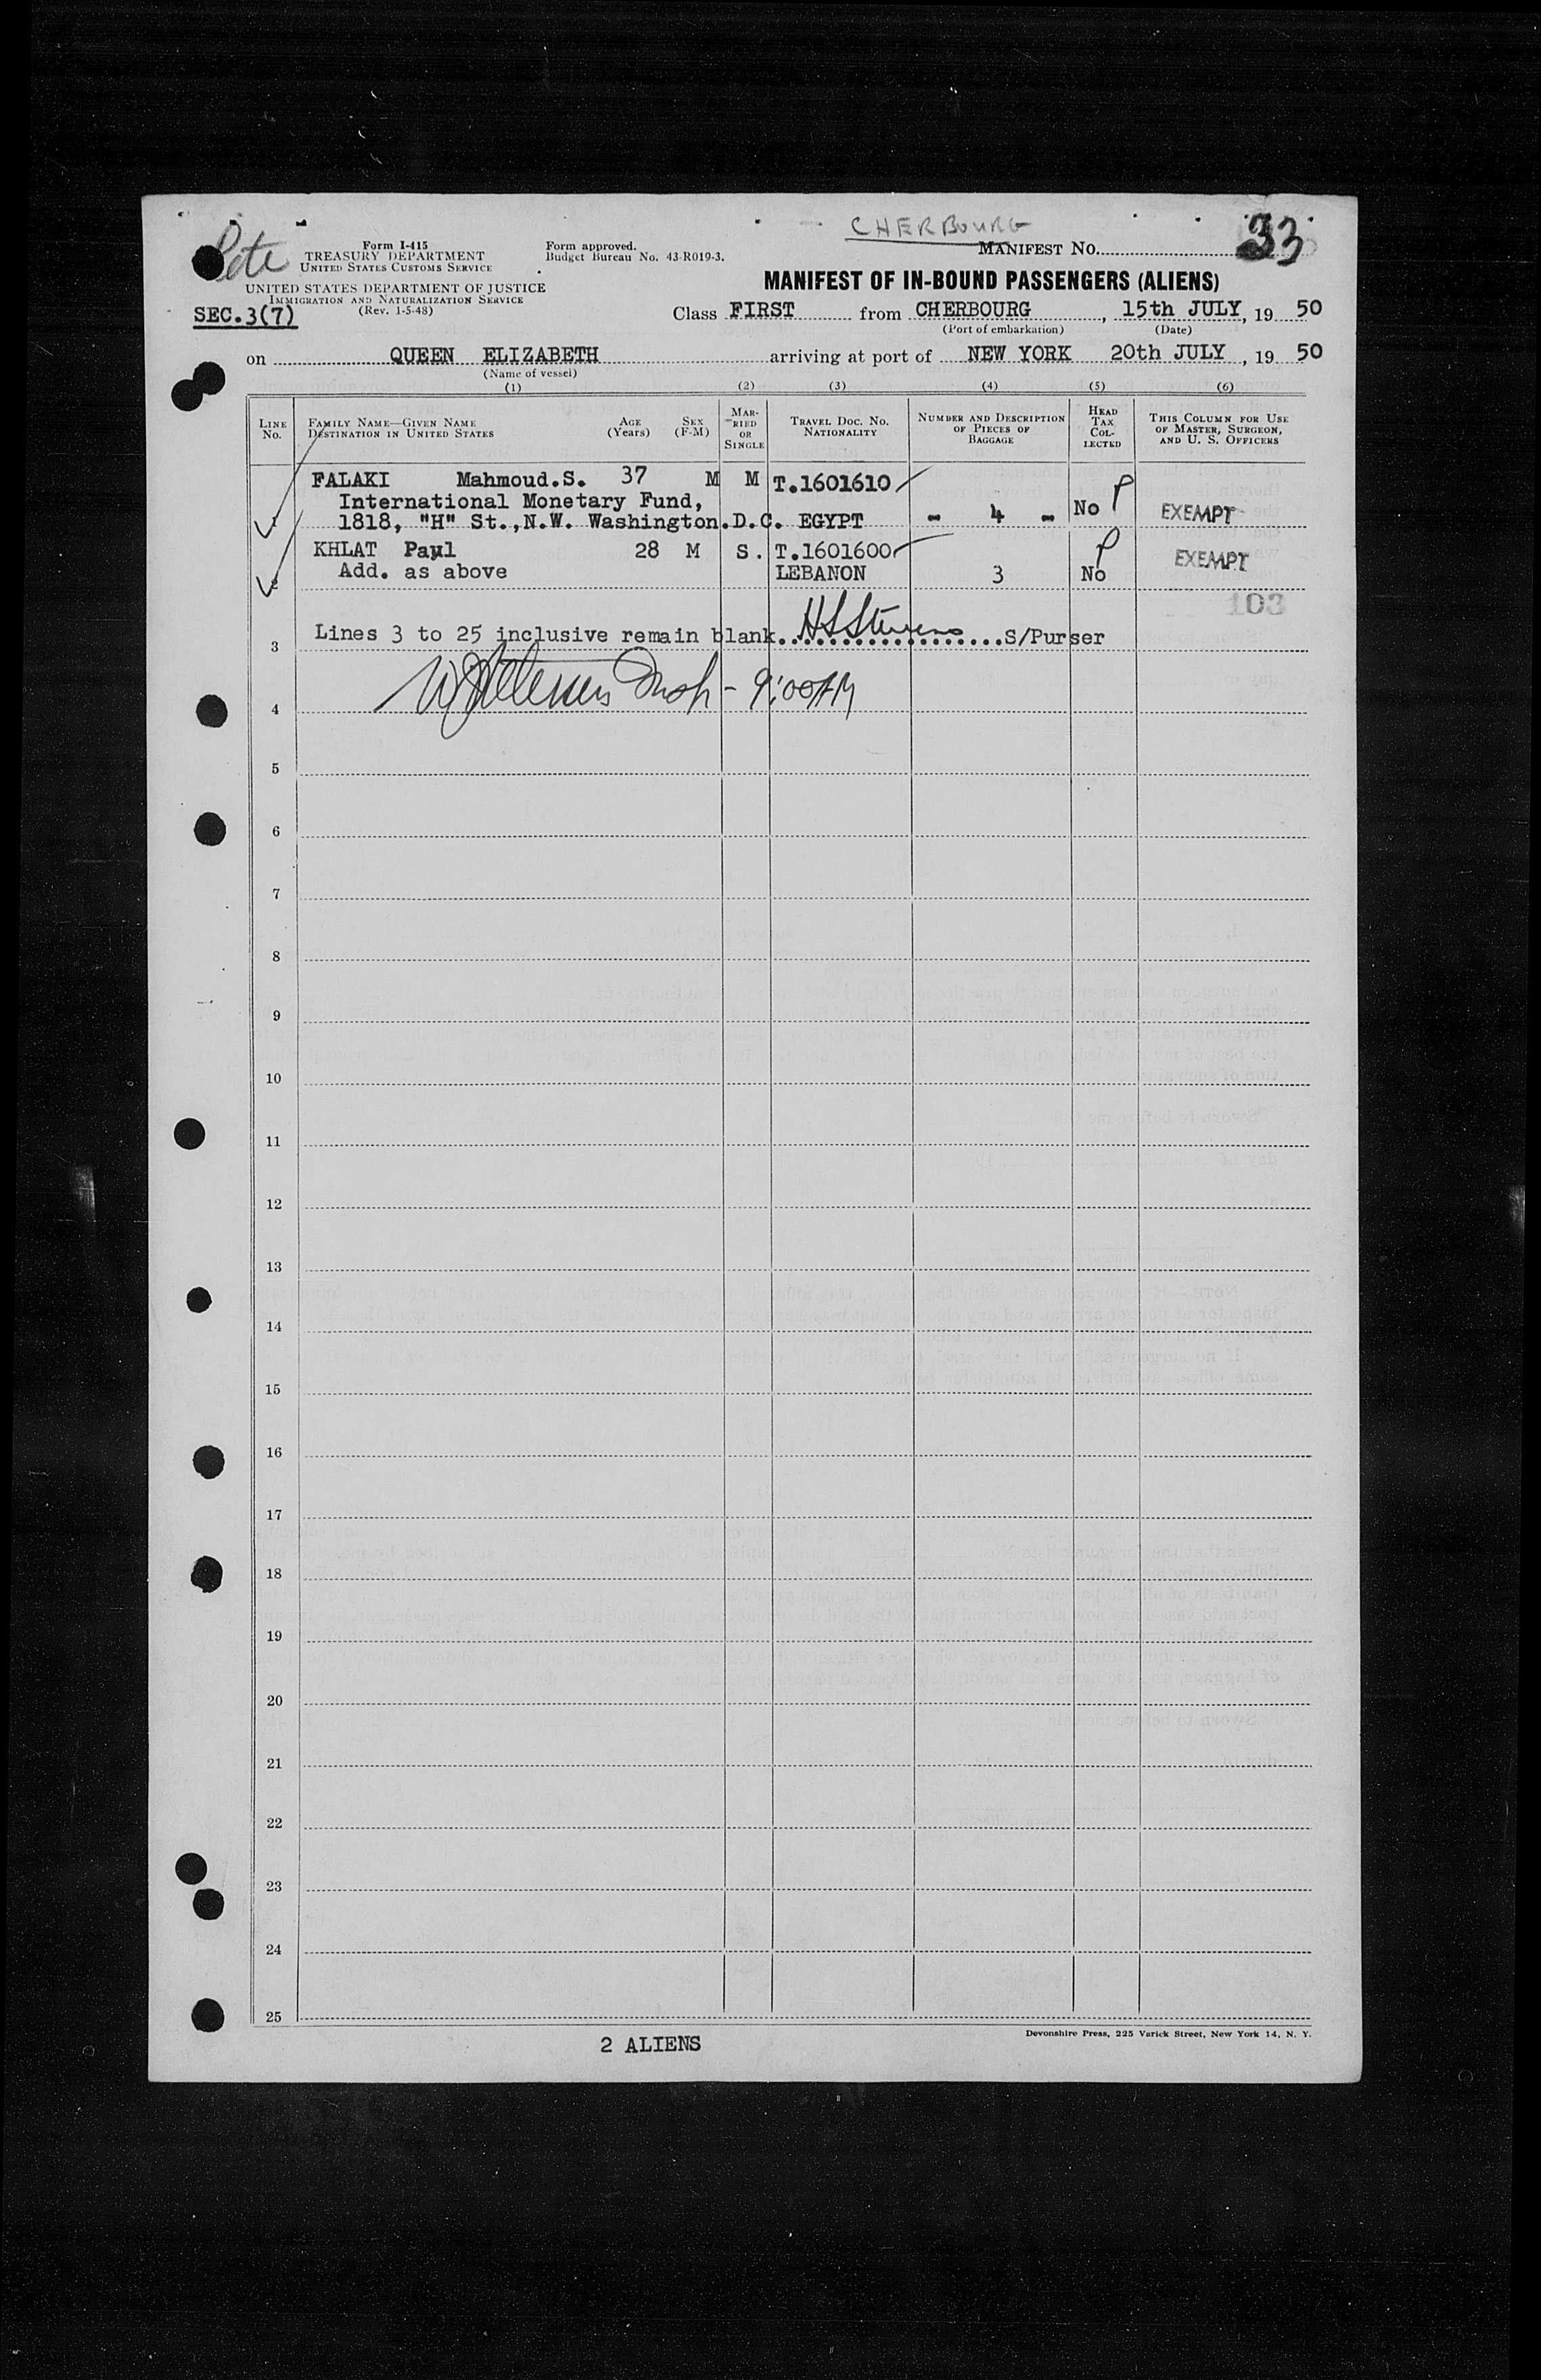 CHERBOURG
33
Form I-415
TREASURY DEPARTMENT
UNITED STATES CUSTOMS SERVICE
Form approved.
Budget Bureau No. 43-R019-3.
MANIFEST No.
UNITED STATES DEPARTMENT OF JUSTICE
IMMIGRATION AND NATURALIZATION SERVICE
(Rev. 1-5-48)
MANIFEST OF IN-BOUND PASSENGERS (ALIENS)
SEC.3(7)
Class FIRST from CHERBOURG, 15th JULY, 19 50
(Port of embarkation) (Date)
on QUEEN ELIZABETH arriving at port of NEW YORK 20th JULY, 19 50
(Name of vessel)
(1) (2) (3) (4) (5) (6)
LINE No.
FAMILY NAME—GIVEN NAME
DESTINATION IN UNITED STATES
AGE (Years)
SEX (F-M)
MARRIED OR SINGLE
TRAVEL DOC. NO. NATIONALITY
NUMBER AND DESCRIPTION OF PIECES OF BAGGAGE
HEAD TAX COLLECTED
THIS COLUMN FOR USE OF MASTER, SURGEON, AND U. S. OFFICERS
FALAKI Mahmoud.S. 37 M M T.1601610
International Monetary Fund,
1 1818, "H" St.,N.W. Washington.D.C. EGYPT - 4 - No P EXEMPT
KHLAT Paul 28 M S. T.1601600 P EXEMPT
2 Add. as above LEBANON 3 No
103
3 Lines 3 to 25 inclusive remain blank. HS Stevens S/Purser
4 - 9:00AM
5
6
7
8
9
10
11
12
13
14
15
16
17
18
19
20
21
22
23
24
25
2 ALIENS
Devonshire Press, 225 Varick Street, New York 14, N. Y.